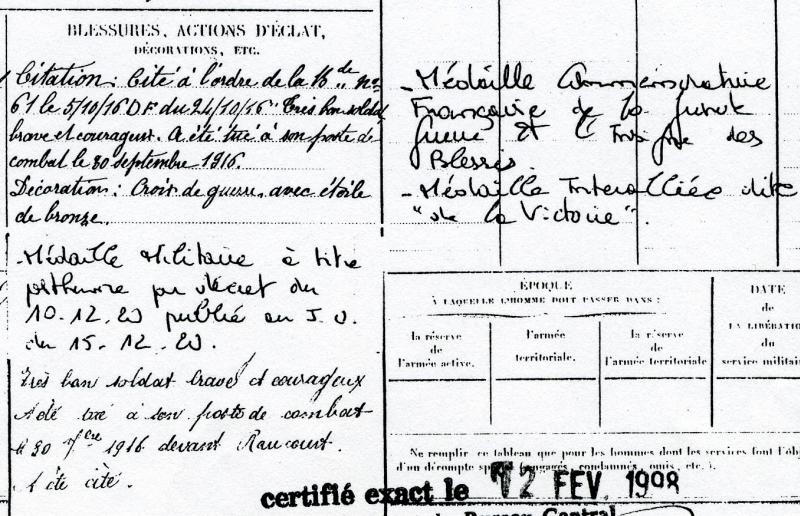 BLESSURES, ACTIONS D'ÉCLAT,
DÉCORATIONS, ETC.
Citation: Cité à l'ordre de la
61 le 5/10/16 D.F. du 24/10/16 "Très bon soldat
brave et courageux. A été tué à son poste de
combat le 30 septembre 1916.
Décoration: Croix de guerre avec étoile
de bronze.
-Médaille Militaire à titre
posthume par décret du
10.12.20 publié au J.O.
du 15.12.20.
Très bon soldat brave et courageux
A été tué à son poste de combat
le 30 7bre 1916 devant Rancourt.
A été cité.
-Médaille Commémorative
Française de la
guerre et l'Insigne des
Blessés.
-Médaille Interalliée dite
"de la Victoire".
ÉPOQUE
À LAQUELLE L'HOMME DOIT PASSER DANS:
la réserve
de
l'armée active.
l'armée
territoriale.
la réserve
de
l'armée territoriale
DATE
de
LA LIBÉRATION
du
service militai
Ne remplir ce tableau que pour les hommes dont les services font l'obj
d'un décompte (engagés, condamnés, omis, etc.).
certifié exact le 12 FEV. 1998
Bureau Central